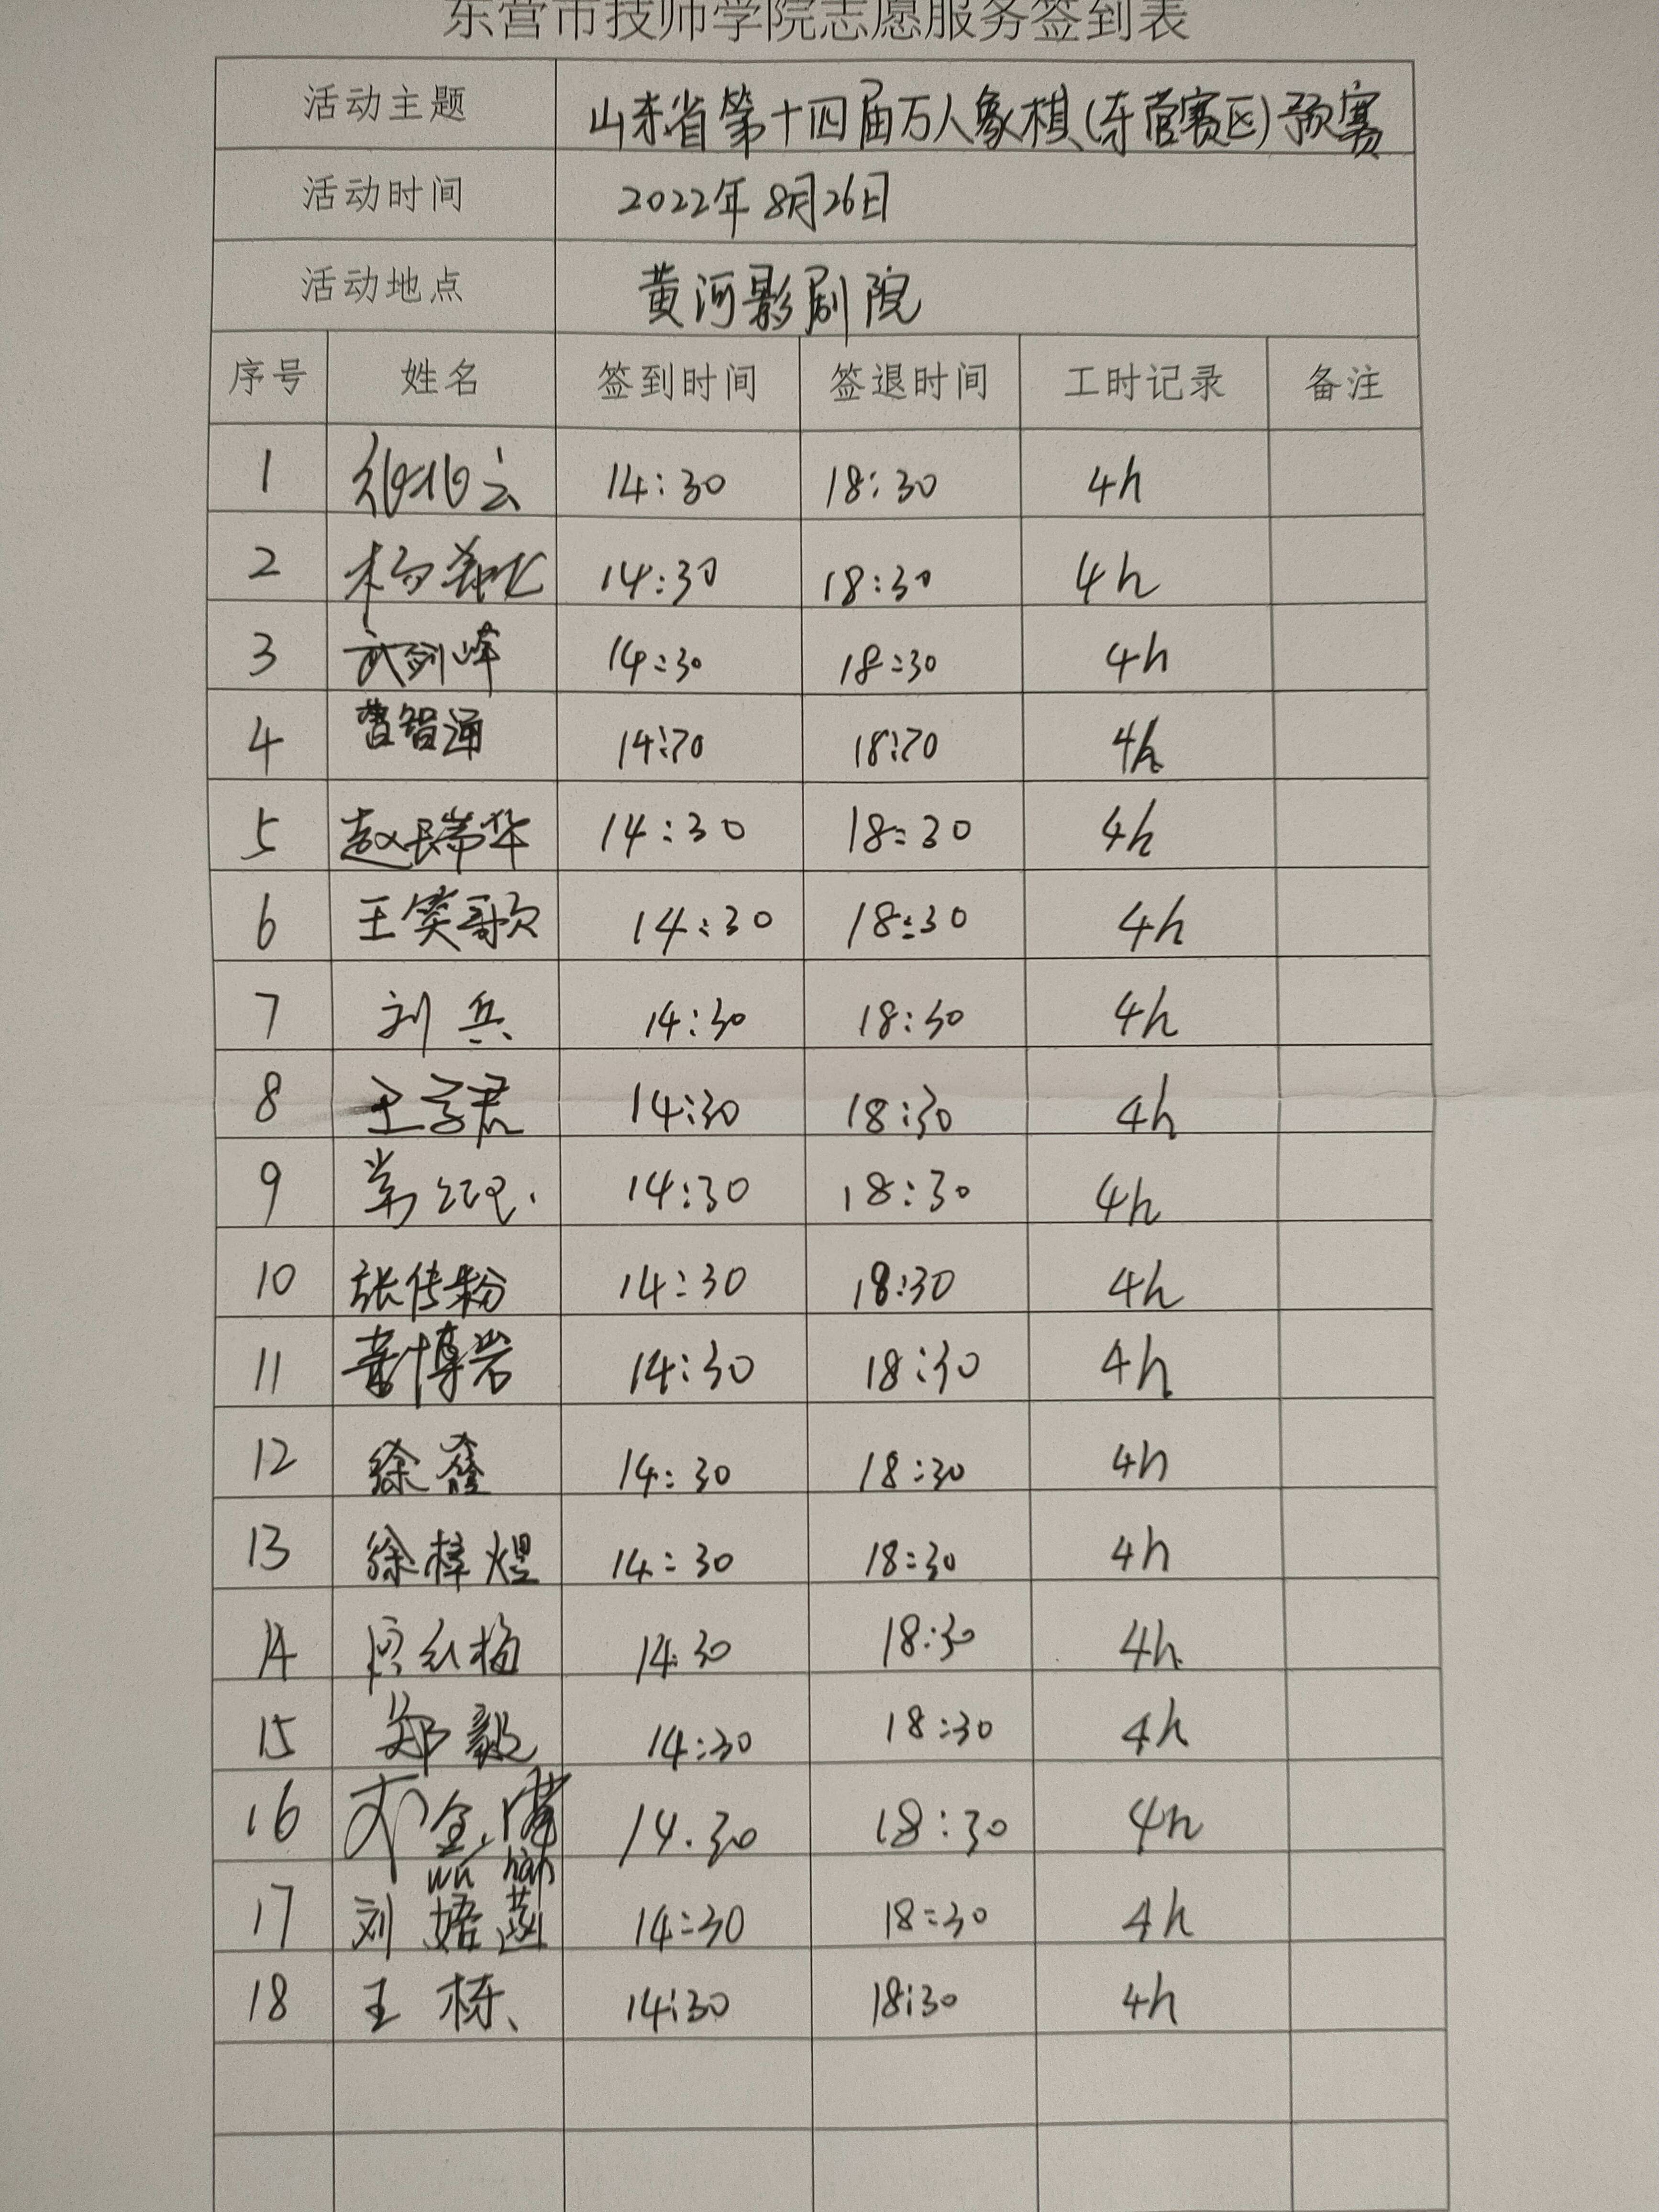 东营市技师学院志愿服务签到表
活动主题 山东省第十四届万人象棋(东营赛区)预赛
活动时间 2022年8月26日
活动地点 黄河影剧院
序号 姓名 签到时间 签退时间 工时记录 备注
1 14:30 18:30 4h
2 杨 14:30 18:30 4h
3 武剑峰 14:30 18:30 4h
4 曹智通 14:30 18:30 4h
5 赵瑞华 14:30 18:30 4h
6 王笑歌 14:30 18:30 4h
7 刘兵 14:30 18:30 4h
8 王学君 14:30 18:30 4h
9 14:30 18:30 4h
10 张传粉 14:30 18:30 4h
11 董博岩 14:30 18:30 4h
12 徐鑫 14:30 18:30 4h
13 徐梓煜 14:30 18:30 4h
14 红梅 14:30 18:30 4h
15 郑毅 14:30 18:30 4h
16 14.30 18:30 4h
wú hán
17 刘娪菡 14:30 18:30 4h
18 王栋 14:30 18:30 4h